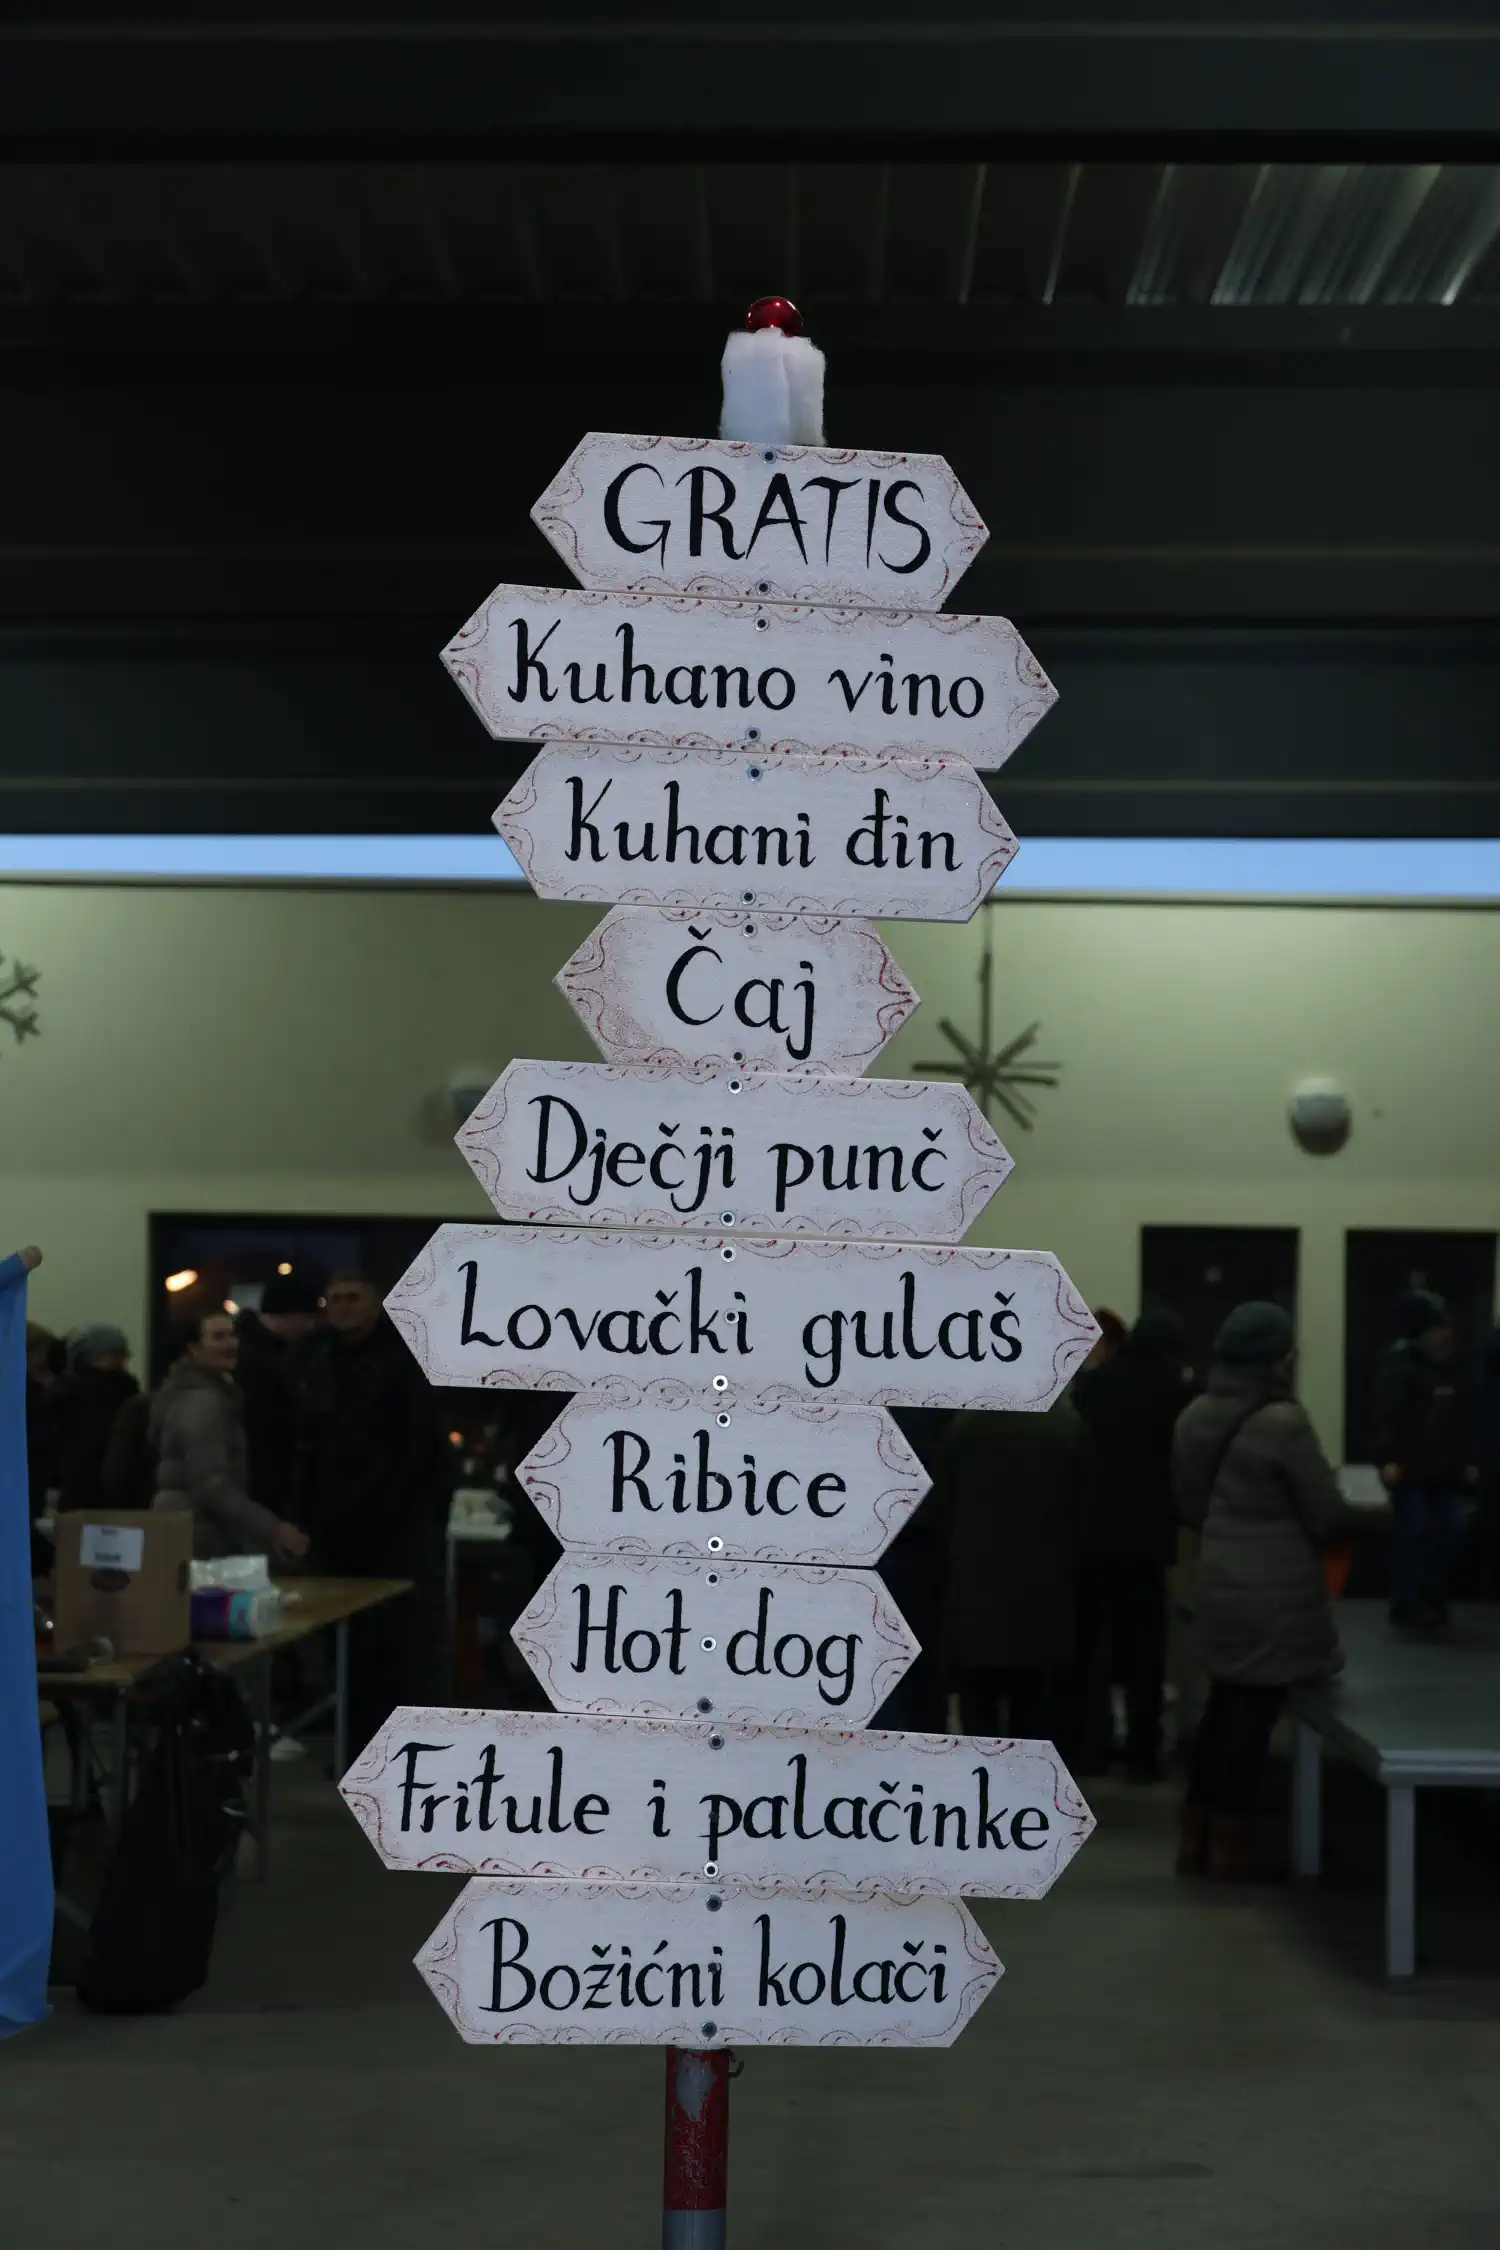 GRATIS
Kuhano vino
Kuhani đin
Čaj
Dječji punč
Lovački gulaš
Ribice
Hot dog
Fritule i palačinke
Božićni kolači